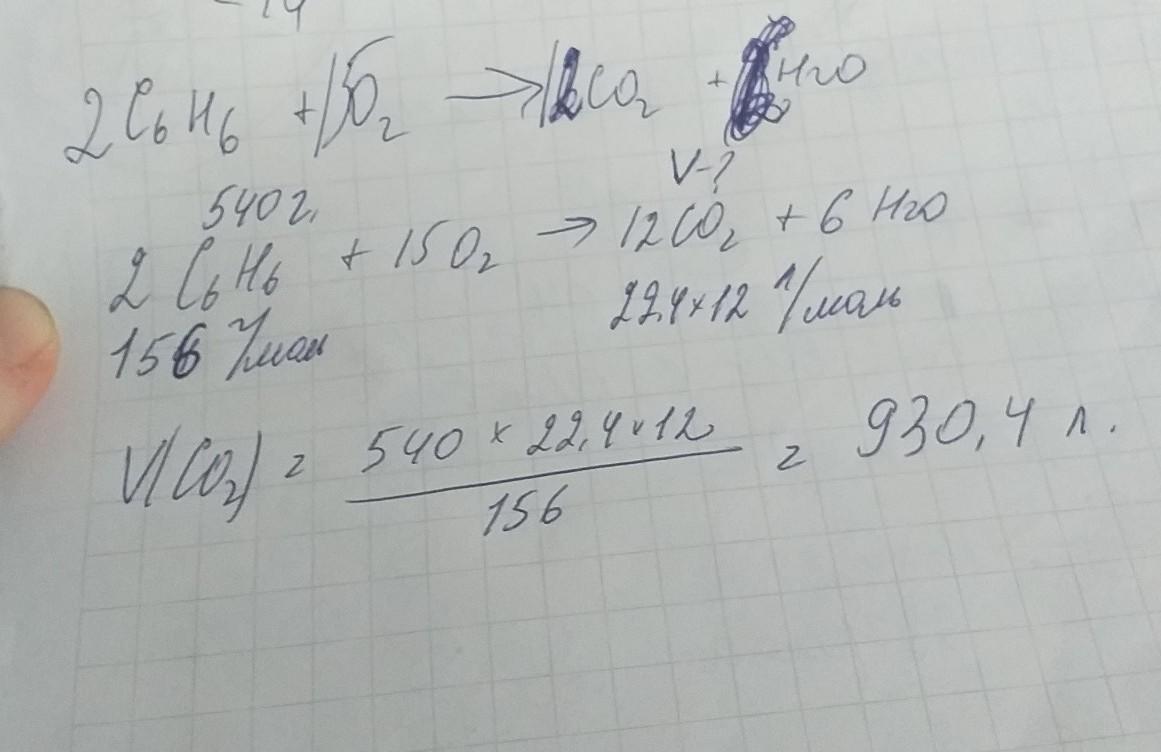 2C₆H₆ + 15O₂ → 12CO₂ + H₂O
V-?
540 г.
2 C₆H₆ + 15O₂ → 12CO₂ + 6 H₂O
156 г/мол 22,4×12 л/моль
V(CO₂) = 540 × 22,4 × 12 / 156 = 930,4 л.